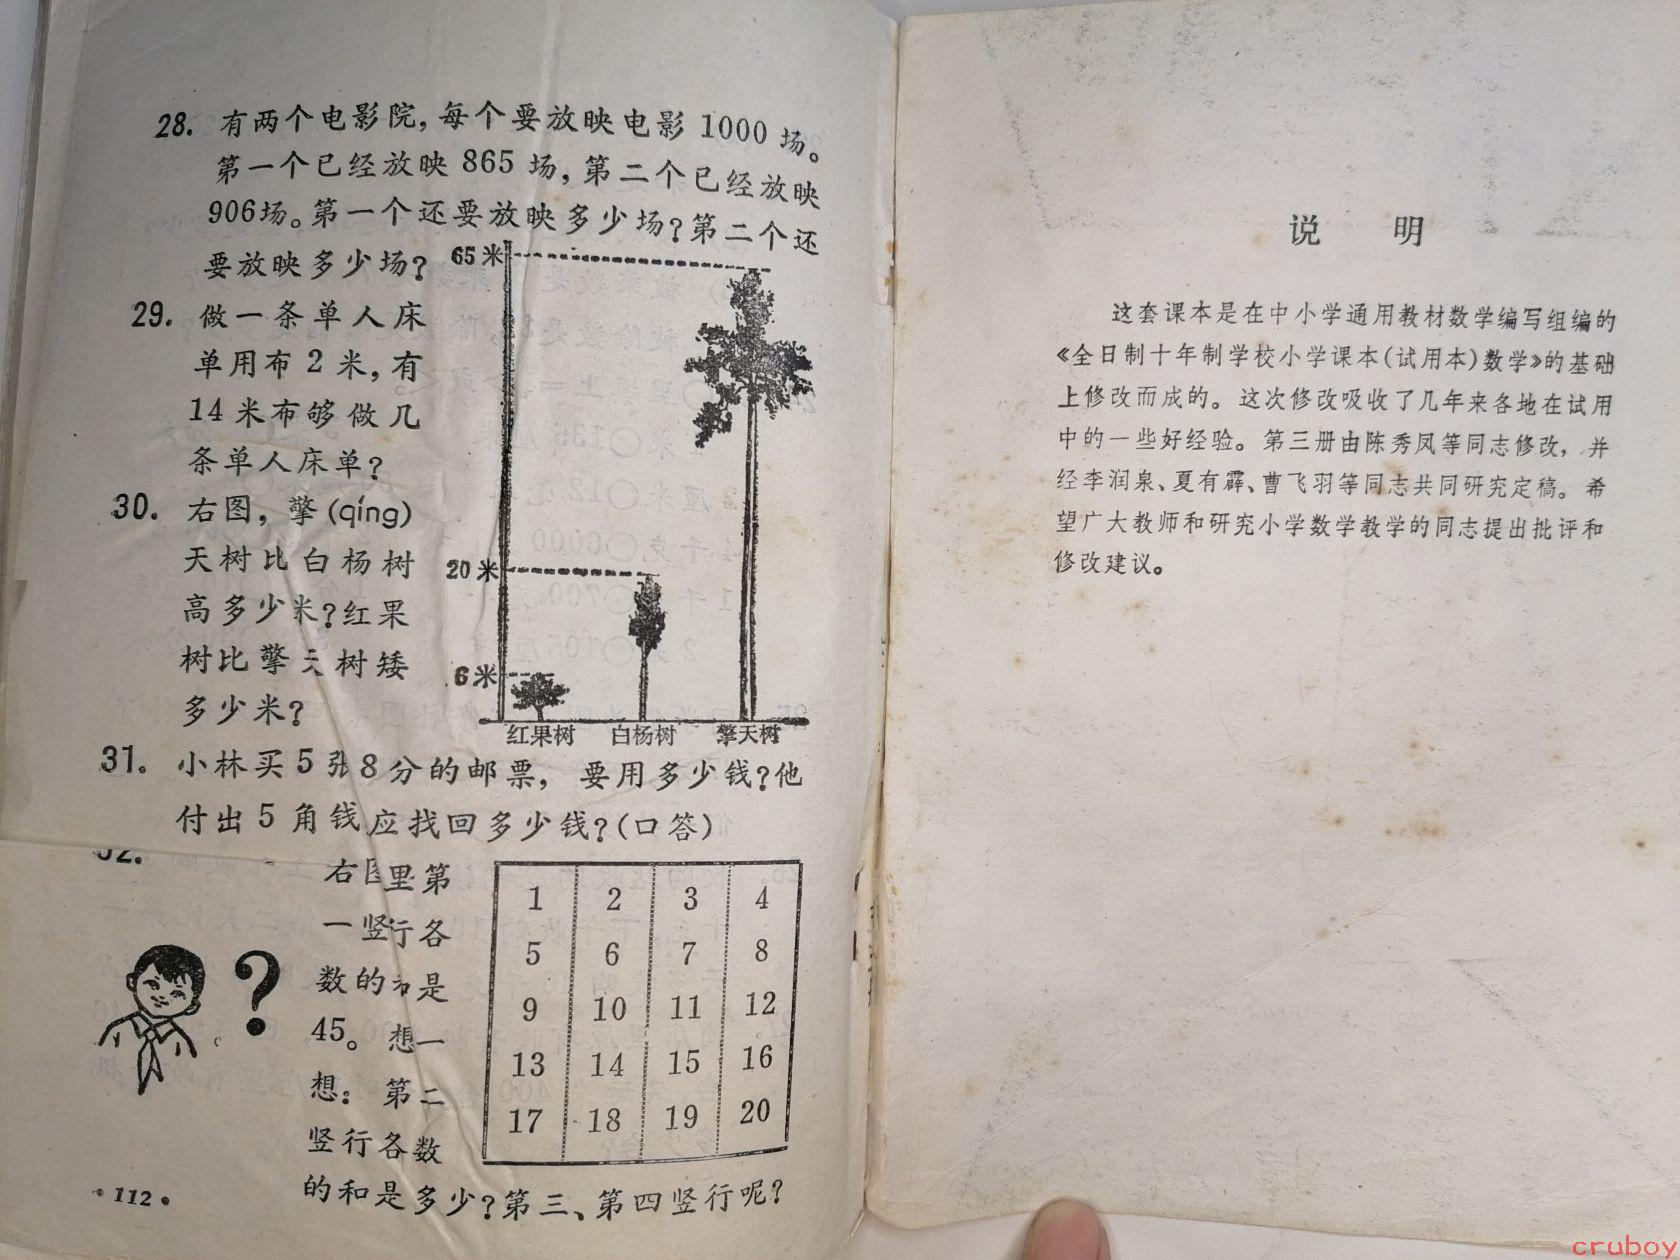 28. 有两个电影院，每个要放映电影 1000 场。
第一个已经放映 865 场，第二个已经放映
906场。第一个还要放映多少场？第二个还
要放映多少场？
29. 做一条单人床
单用布 2 米，有
14 米布够做几
条单人床单？
30. 右图，擎(qíng)
天树比白杨树
高多少米？红果
树比擎天树矮
多少米？
65 米
20 米
6 米
红果树 白杨树 擎天树
31. 小林买 5 张 8 分的邮票，要用多少钱？他
付出 5 角钱应找回多少钱？(口答)
32. 右图里第
一竖行各
数的和是
45。想一
想：第二
竖行各数
的和是多少？第三、第四竖行呢？
?
1 2 3 4
5 6 7 8
9 10 11 12
13 14 15 16
17 18 19 20
·112·
说 明
这套课本是在中小学通用教材数学编写组编的
《全日制十年制学校小学课本(试用本)数学》的基础
上修改而成的。这次修改吸收了几年来各地在试用
中的一些好经验。第三册由陈秀凤等同志修改，并
经李润泉、夏有霖、曹飞羽等同志共同研究定稿。希
望广大教师和研究小学数学教学的同志提出批评和
修改建议。
cruboy